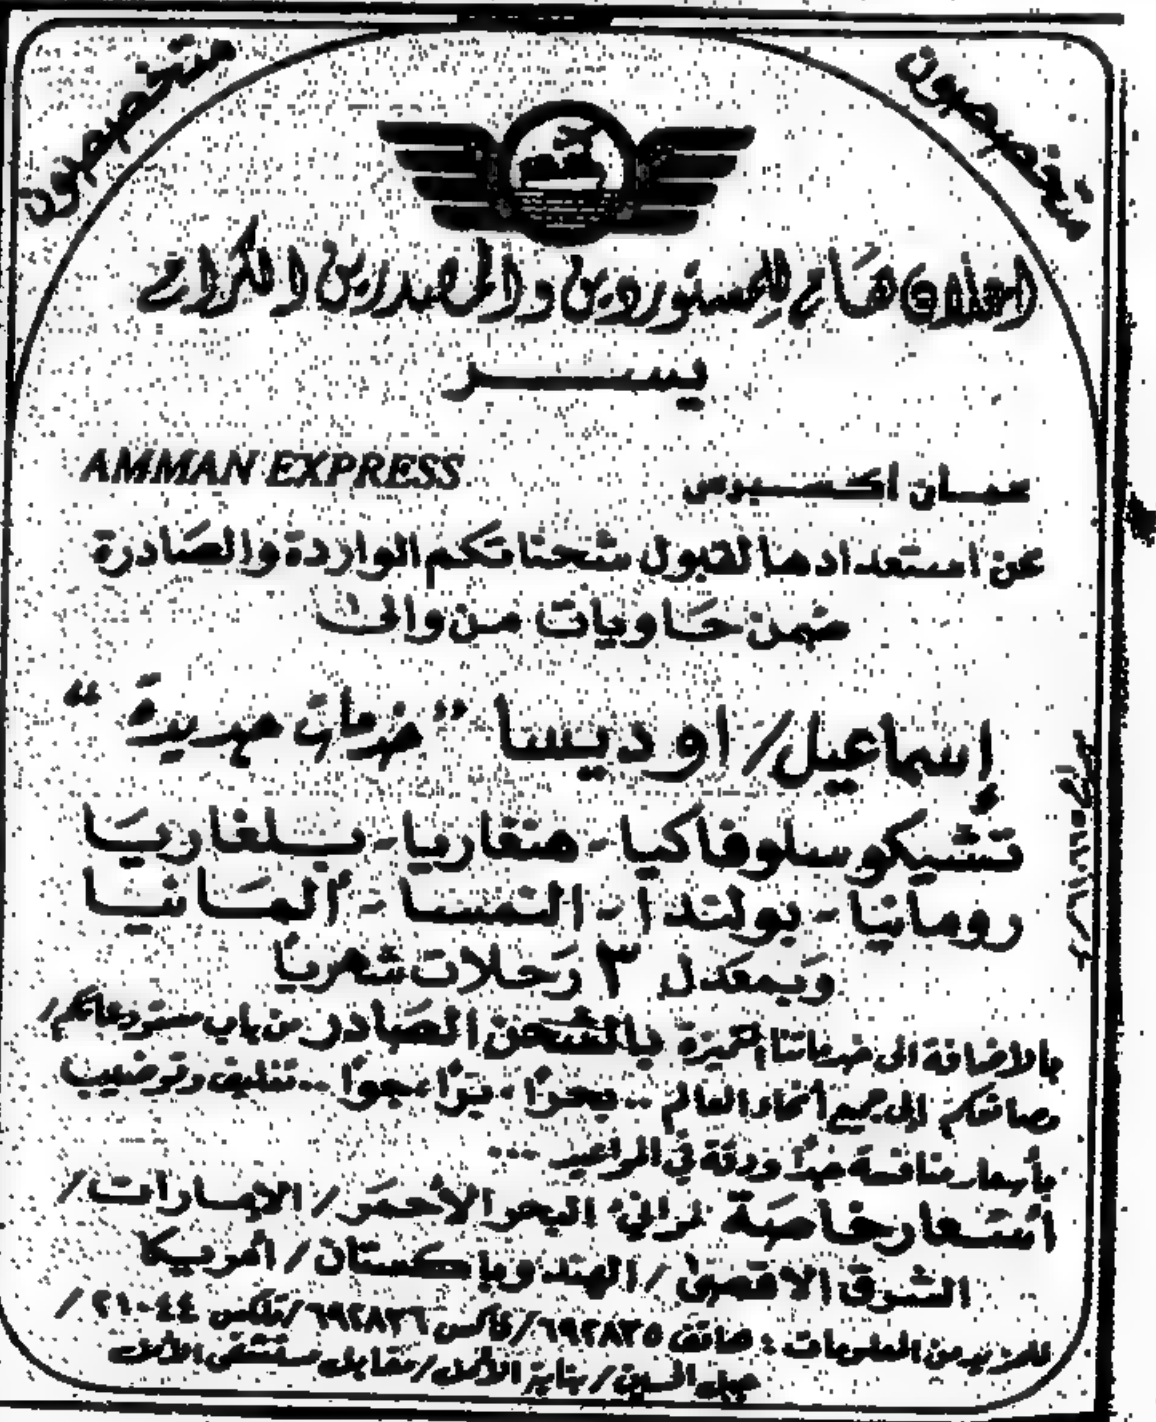 متخصصون
متخصصون
إعلان هام للمستوردين والمصدرين الكرام
يسر
عمان اكسبرس AMMAN EXPRESS
عن استعدادها لقبول شحناتكم الواردة والصادرة
ضمن حاويات من والى
إسماعيل/اوديسا "خدمات جديدة"
تشيكوسلوفاكيا - هنغاريا - بلغاريا
رومانيا - بولندا - النمسا - ألمانيا
وبمعدل ٣ رحلات شهرياً
بالاضافة الى خدماتنا المتميزة بالشحن الصادر من باب مستودعاتكم/
مصانعكم إلى جميع أنحاء العالم .. بحراً - براً - جواً .. تغليف وتوضيب
بأسعار منافسة جداً ودقة في المواعيد ...
أسعار خاصة لموانئ البحر الأحمر/الإمارات/
الشرق الاقصى/الهند وباكستان/أمريكا
للمزيد من المعلومات: هاتف ٦٩٢٨٣٥/فاكس ٦٩٢٨٣٦/تلكس ٢١٠٤٤/
جبل الحسين/بناية الأمل/مقابل مستشفى الأمل